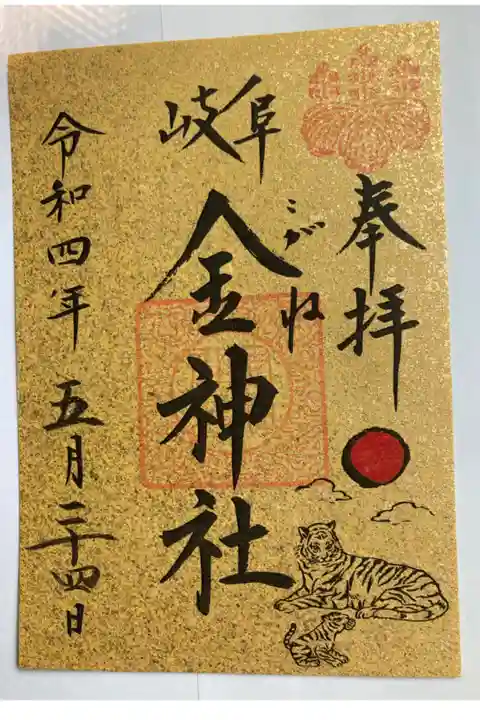 奉拝
岐阜
こがね
金神社
令和四年 五月二十四日